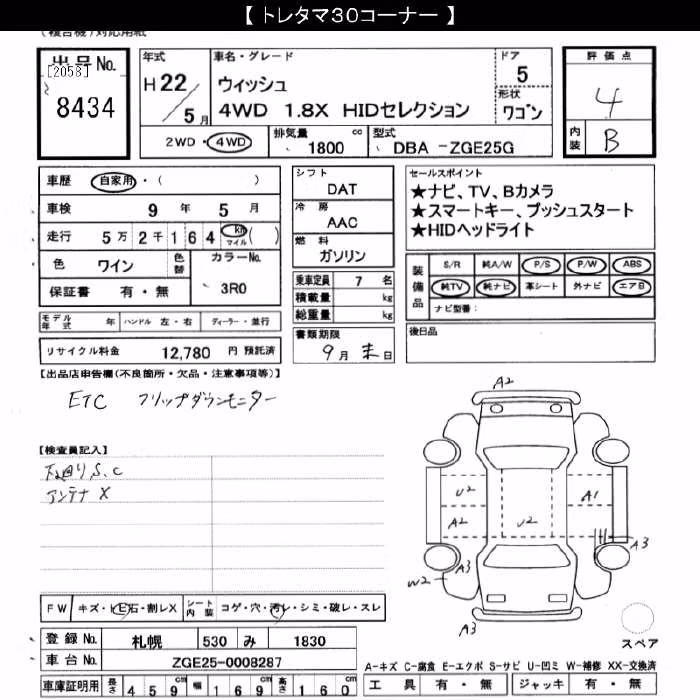 【 トレタマ30コーナー 】
(複合機)対応用紙
出品No. [2058] 8434
年式 H22/5月
車名・グレード
ウィッシュ
4WD 1.8X HIDセレクション
ドア 5
形状 ワゴン
評価点 4
内装 B
2WD・4WD 排気量 1800 cc 型式 DBA -ZGE25G
車歴 自家用・( )
車検 9年 5月
走行 5万2千164 km マイル ( )
色 ワイン 色替 カラーNo. 3R0
保証書 有・無
モデル年式 年 ハンドル 左・右 ディーラー・並行
リサイクル料金 12,780 円 預託済
シフト DAT
冷房 AAC
燃料 ガソリン
乗車定員 7 名
積載量 kg
総重量 kg
書類期限 9月末日
セールスポイント
★ナビ、TV、Bカメラ
★スマートキー、プッシュスタート
★HIDヘッドライト
装備品 S/R 純A/W P/S P/W ABS
純TV 純ナビ 革シート 外ナビ エアB
ナビ型番:
後日品
【出品店申告欄(不良箇所・欠品・注意事項等)】
ETC フリップダウンモニター
【検査員記入】
下廻りS.C
アンテナ X
A2
U2 A1
A2 U2
A3 A3
W2
A3
スペア
FW キズ・トビ石・割レX シート内装 コゲ・穴・汚レ・シミ・破レ・スレ
登録No. 札幌 530 み 1830
車台No. ZGE25-0008287
車庫証明用 長さ 459cm 幅 169cm 高さ 160cm
A-キズ C-腐食 E-エクボ S-サビ U-凹ミ W-補修 XX-交換済
工具 有・無 ジャッキ 有・無